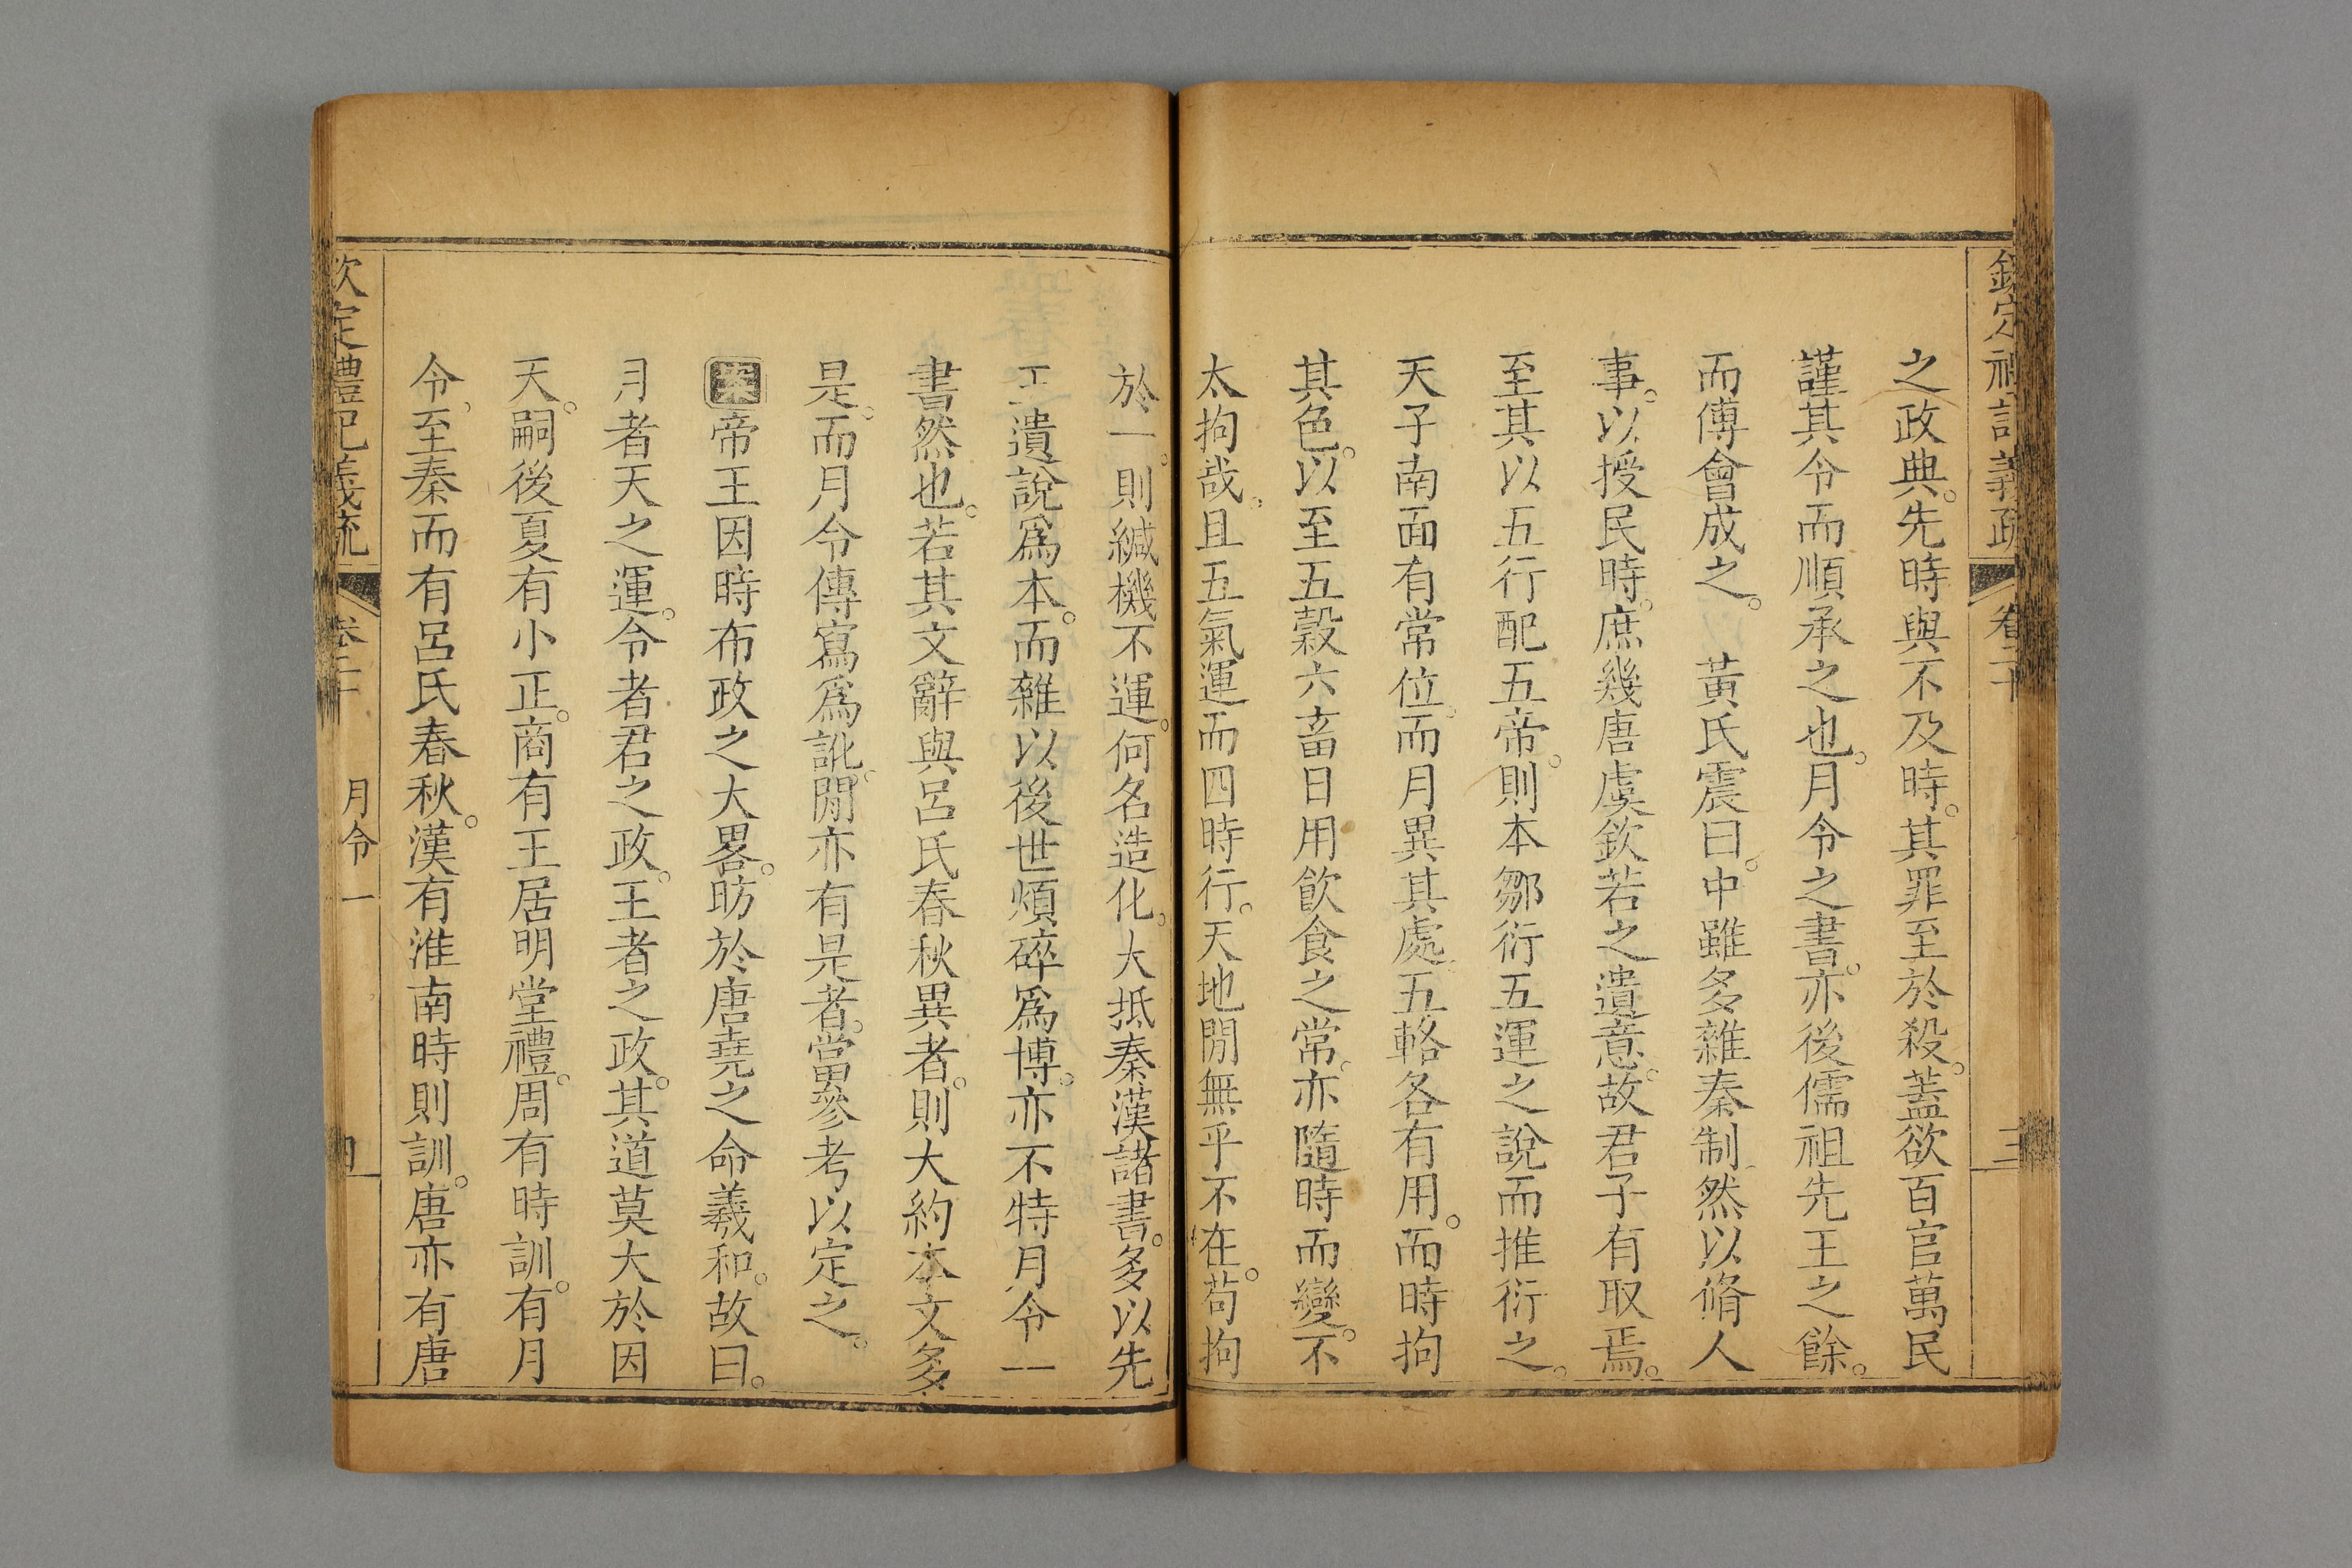 欽定禮記義疏 卷二十 三
之政典。先時與不及時。其罪至於殺。蓋欲百官萬民
謹其令而順承之也。月令之書。亦後儒祖先王之餘。
而傅會成之。 黃氏震曰。中雖多雜秦制。然以脩人
事。以授民時。庶幾唐虞欽若之遺意。故君子有取焉。
至其以五行配五帝。則本鄒衍五運之說而推衍之。
天子南面有常位。而月異其處。五輅各有用。而時拘
其色。以至五穀六畜日用飲食之常。亦隨時而變。不
太拘哉。且五氣運而四時行。天地閒無乎不在。苟拘
於一。則緘機不運。何名造化。大抵秦漢諸書。多以先
王遺說爲本。而雜以後世煩碎爲博。亦不特月令一
書然也。若其文辭與呂氏春秋異者。則大約本文多
是。而月令傳寫爲訛。閒亦有是者。當參考以定之。
案帝王因時布政之大畧。昉於唐堯之命羲和。故曰。
月者天之運。令者君之政。王者之政。其道莫大於因
天。嗣後夏有小正。商有王居明堂禮。周有時訓。有月
令。至秦而有呂氏春秋。漢有淮南時則訓。唐亦有唐
欽定禮記義疏 卷二十 月令一 四